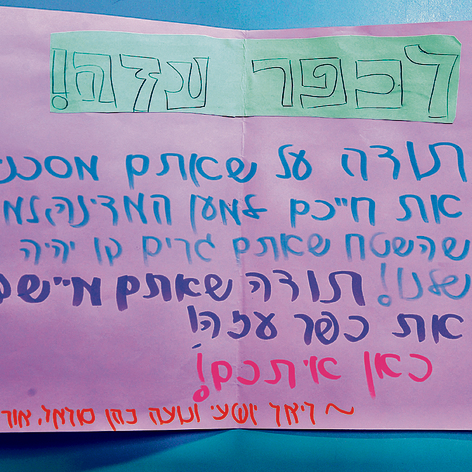 לכפר עזה!
תודה על שאתם מסכנ
את חייכם למען המדינה,למ
שהשטח שאתם גרים בו יהיה
שלנו! תודה שאתם מיישב
את כפר עזה!
כאן איתכם!
~ ונועה כהן אור